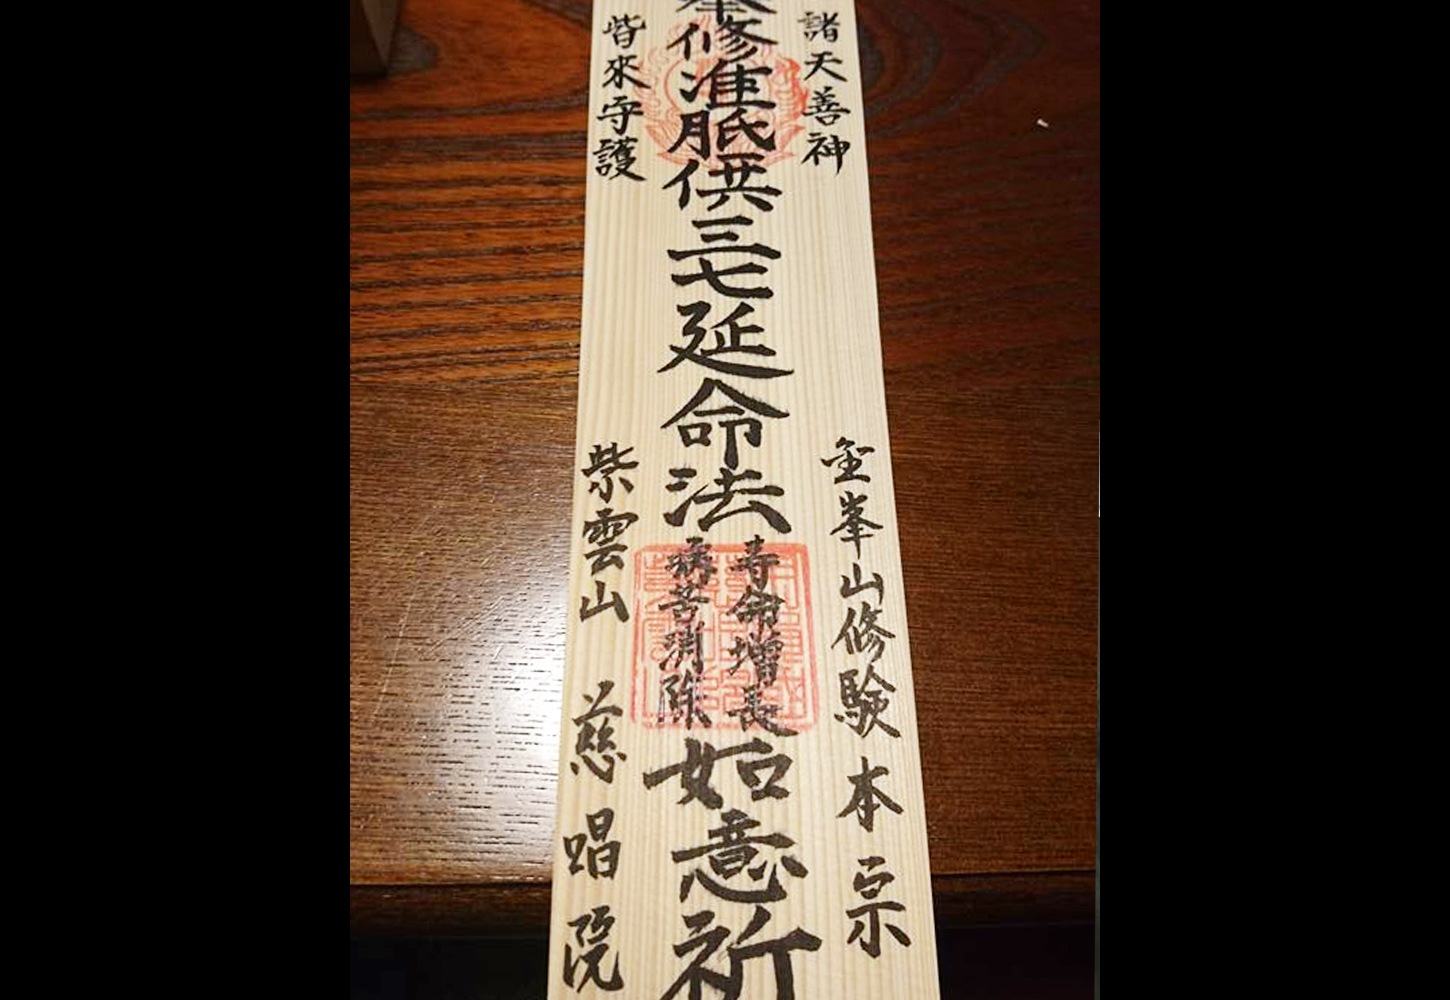 諸天善神
金峯山修験本宗
奉修准胝供三七延命法
寿命増長
病苦消除
如意祈
皆來守護
紫雲山 慈唱院